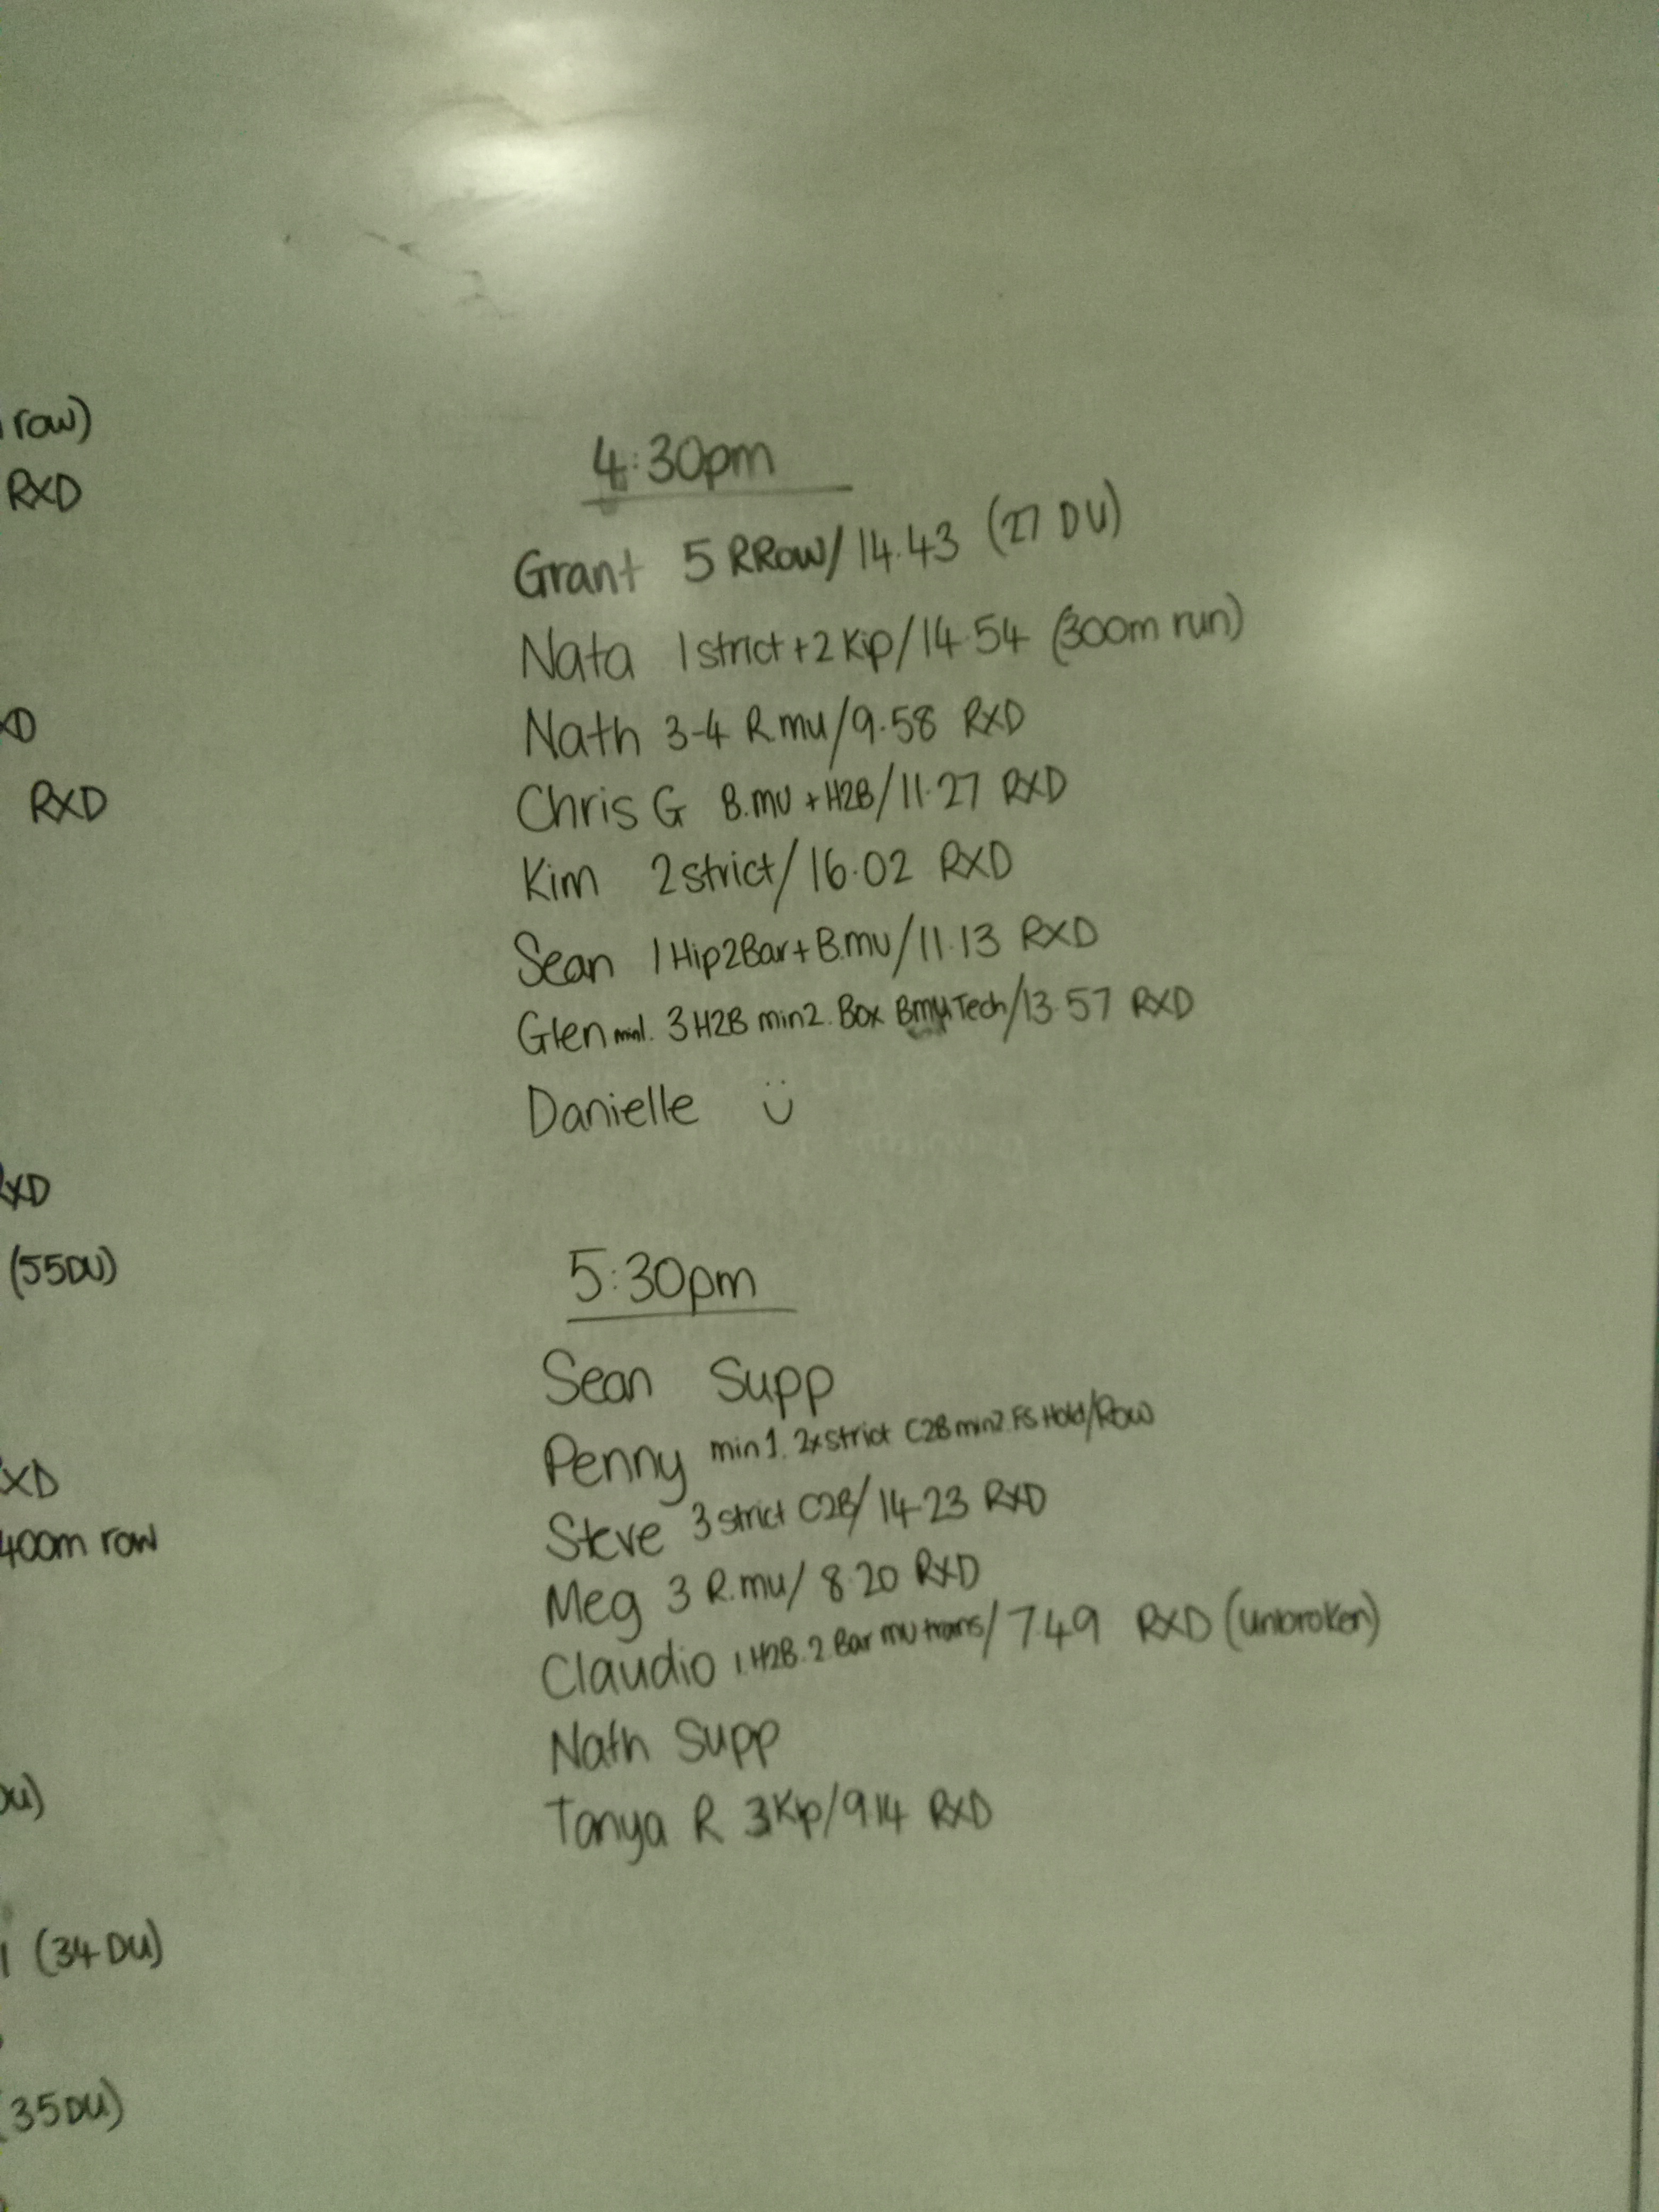 row)
RXD
XD
RXD
RXD
(55DU)
XD
400m row
DU)
1 (34 DU)
(35DU)
4:30pm
Grant 5 RRow/14.43 (27 DU)
Nata 1 strict + 2 Kip/14.54 (300m run)
Nath 3-4 R.mu/9.58 RXD
Chris G B.mu + H2B/11.27 RXD
Kim 2 strict/16.02 RXD
Sean 1 Hip2Bar + B.mu/11.13 RXD
Glen min1. 3 H2B min2. Box Bmu Tech/13.57 RXD
Danielle Ü
5:30pm
Sean Supp
Penny min 1. 2x strict C2B min2. FS Hold/Row
Steve 3 strict C2B/14.23 RXD
Meg 3 R.mu/8.20 RXD
Claudio 1.H2B.2.Bar mu trans/7.49 RXD (unbroken)
Nath Supp
Tanya R 3 Kip/9.14 RXD